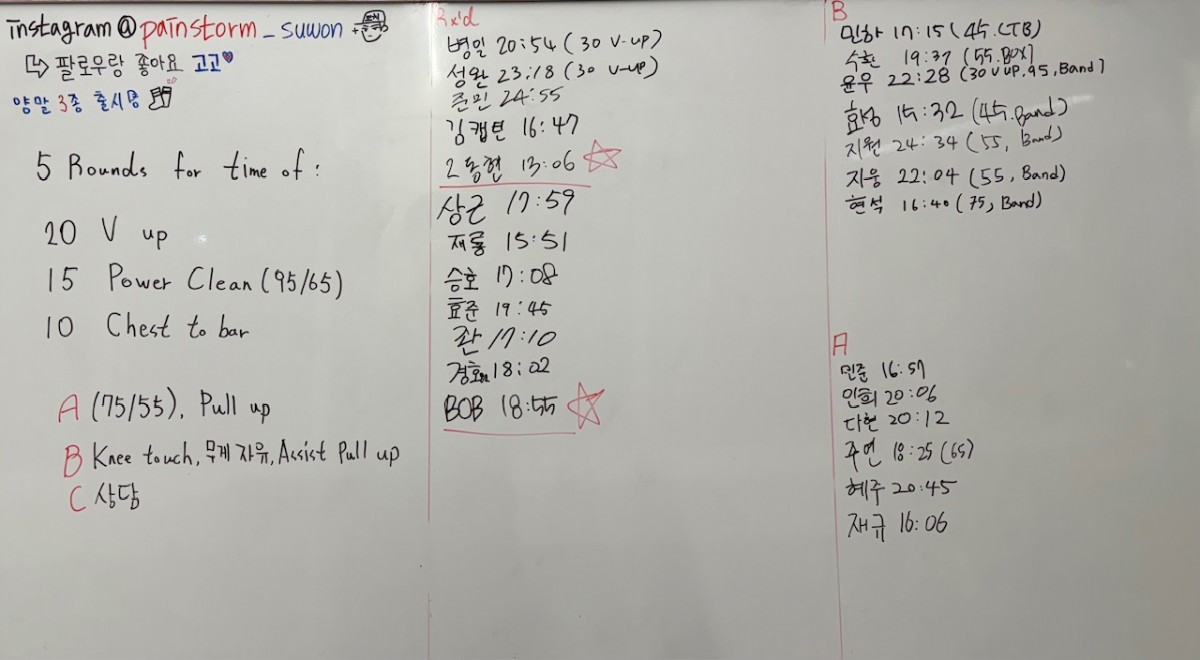 instagram@painstorm_suwon
팔로우랑 좋아요 고고
양말 3종 출시중
5 Rounds for time of:
20 V up
15 Power Clean (95/65)
10 Chest to bar
A (75/55), Pull up
B Knee touch, 무게 자유, Assist Pull up
C 상담
Rx'd
병일 20:54 (30 V-up)
성완 23:18 (30 V-up)
준민 24:55
김캡틴 16:47
2동현 13:06
상근 17:59
재룡 15:51
승호 17:08
효준 19:45
콴 17:10
경호 18:02
BOB 18:55
B
민하 17:15 (45.CTB)
수환 19:37 (55.BOX)
윤우 22:28 (30 V up, 95, Band)
효성 15:32 (45.Band)
지원 24:34 (55, Band)
지웅 22:04 (55, Band)
현석 16:40 (75, Band)
A
민준 16:57
인희 20:06
다현 20:12
주연 18:25 (65)
혜주 20:45
재규 16:06